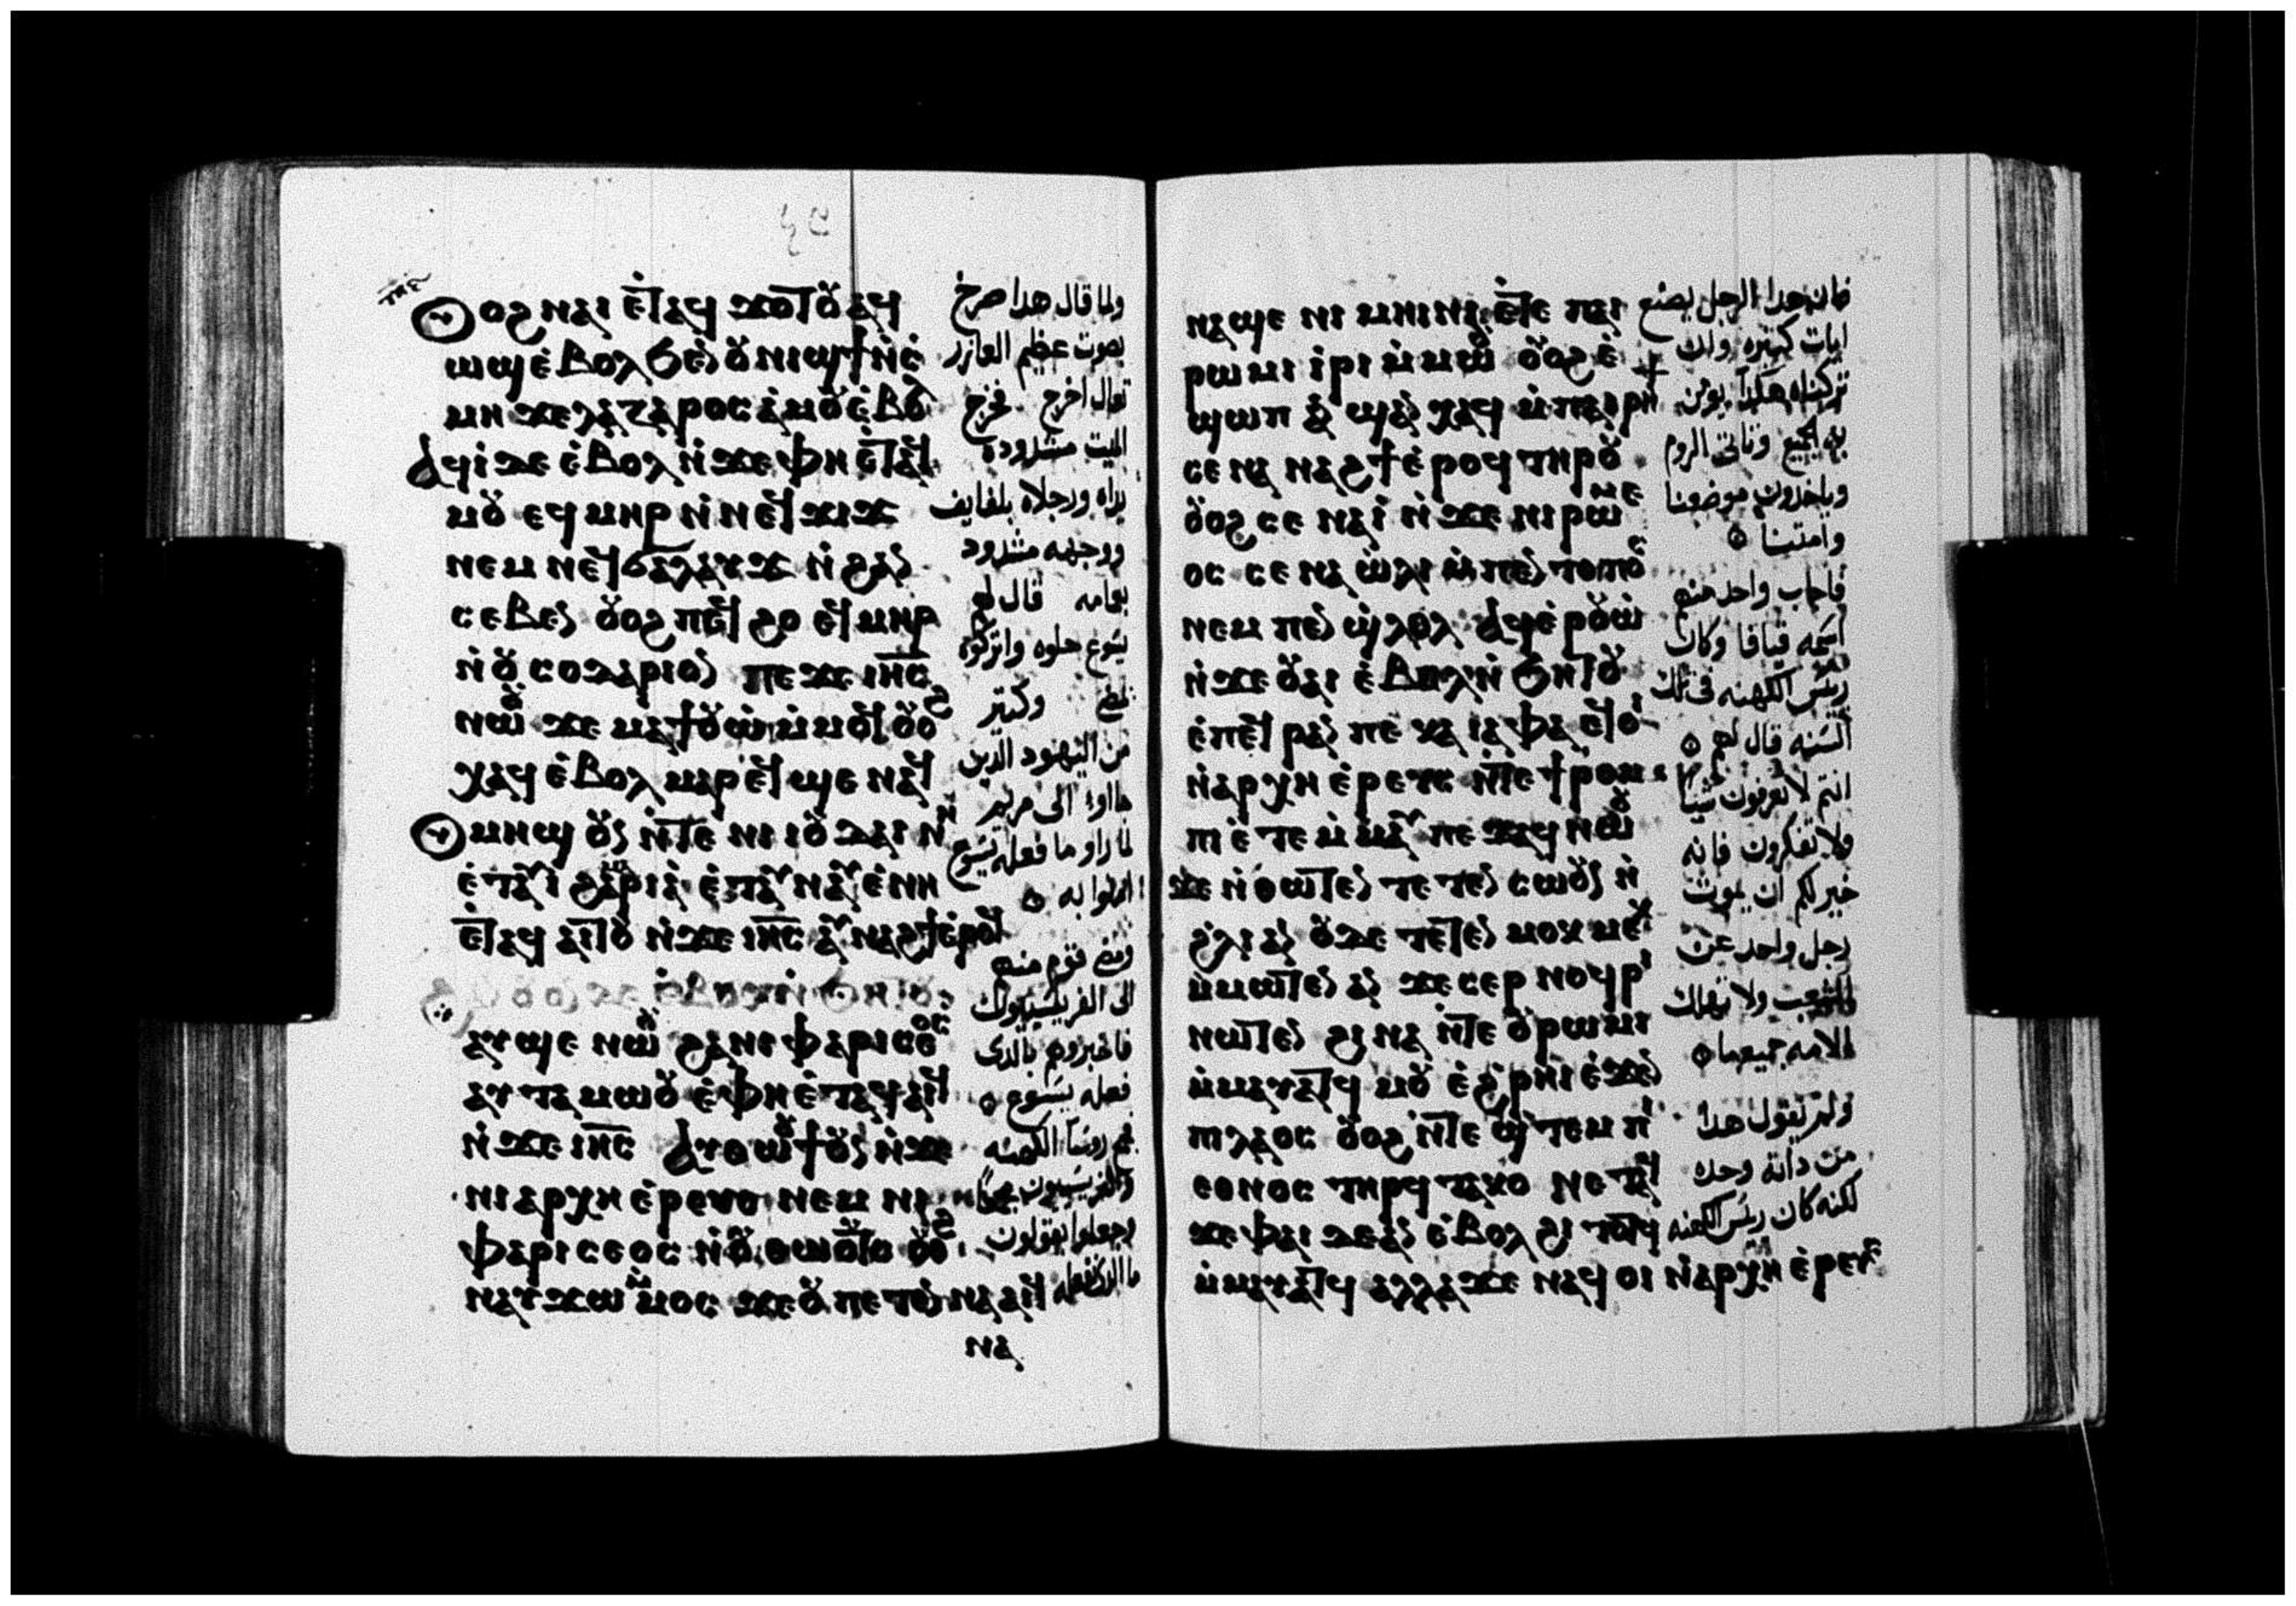 ⲟⲩⲟϩ ⲛⲁⲓ ⲉⲧⲁϥϫⲟⲧⲟⲩ ⲁϥ
ⲱϣ ⲉⲃⲟⲗ ϧⲉⲛ ⲟⲩⲛⲓϣϯ ⲛⲥ
ⲙⲏ ϫⲉ ⲗⲁⲍⲁⲣⲟⲥ ⲁⲙⲟⲩ ⲉⲃⲟⲗ
ⲁϥⲓ ϫⲉ ⲉⲃⲟⲗ ⲛϫⲉ ⲫⲏ ⲉⲧⲁϥ
ⲙⲟⲩ ⲉϥⲙⲏⲣ ⲛⲛⲉϥϫⲓϫ
ⲛⲉⲙ ⲛⲉϥϭⲁⲗⲁⲩϫ ⲛϩⲁⲛ
ⲥⲉⲃⲉⲛ ⲟⲩⲟϩ ⲡⲉϥϩⲟ ⲉϥⲙⲏⲣ
ⲛⲟⲩⲥⲟⲩⲇⲁⲣⲓⲟⲛ ⲡⲉϫⲉ ⲓⲏⲥ
ⲛⲱⲟⲩ ϫⲉ ⲙⲁⲧⲟⲩⲱ ⲙⲙⲟϥ ⲟⲩⲟϩ
ⲭⲁϥ ⲉⲃⲟⲗ ⲙⲁⲣⲉϥϣⲉ ⲛⲁϥ
ⲟⲩⲙⲏϣ ⲟⲩⲛ ⲛⲧⲉ ⲛⲓⲓⲟⲩⲇⲁⲓ ⲛⲏ
ⲉⲧⲁⲩⲓ ϩⲁ ⲙⲁⲣⲓⲁ ⲉⲧⲁⲩⲛⲁⲩ ⲉⲫⲏ
ⲉⲧⲁϥⲁⲓⲧⲟⲩ ⲛϫⲉ ⲓⲏⲥ ⲁⲩⲛⲁϩϯ ⲉⲣⲟϥ
ϩⲁⲛⲟⲩⲟⲛ ϫⲉ ⲉⲃⲟⲗ ⲛϧⲏⲧⲟⲩ
ⲁⲩϣⲉ ⲛⲱⲟⲩ ϩⲁ ⲛⲓⲫⲁⲣⲓⲥⲉⲟⲥ
ⲁⲩⲧⲁⲙⲱⲟⲩ ⲉⲫⲏ ⲉⲧⲁϥⲁⲓϥ
ⲛϫⲉ ⲓⲏⲥ ⲁⲩⲑⲱⲟⲩϯ ⲟⲩⲛ ⲛϫⲉ
ⲛⲓⲁⲣⲭⲏⲉⲣⲉⲩⲥ ⲛⲉⲙ ⲛⲓ
ⲫⲁⲣⲓⲥⲉⲟⲥ ⲛⲟⲩⲑⲱⲟⲩⲧⲥ ⲟⲩⲟϩ
ⲛⲁⲩϫⲱ ⲙⲙⲟⲥ ϫⲉ ⲟⲩ ⲡⲉⲧⲉⲛⲛⲁⲁⲓϥ
ⲛⲁ
ولما قال هدا صرخ
بصوت عظيم العازر
تعال اخرج فخرج
الميت مشدوده
يداه ورجلاه بلفايف
ووجهه مشدود
بعامه قال لهم
يسوع حلوه واتركوه
يمضي وكتير
من اليهود الدين
جااوا الى مريم
لما راوا ما فعله يسوع
امنوا به
ومضى قوم منهم
الى الفريسيين
فاخبروهم بالدى
فعله يسوع
ثم روسا الكهنه
والفريسيون مجمعا
وجعلوا يقولون
ما الدى نفعله
ⲛⲁϣⲉ ⲛⲓⲙⲏⲓⲛⲓ ⲉⲧⲉ ⲡⲁⲓ
ⲣⲱⲙⲓ ⲓⲣⲓ ⲙⲙⲱⲟⲩ ⲟⲩⲟϩ ⲉ
ϣⲱⲡ ⲁⲛϣⲁⲛⲭⲁϥ ⲙⲡⲁⲓⲣⲏϯ
ⲥⲉⲛⲁⲛⲁϩϯ ⲉⲣⲟϥ ⲧⲏⲣⲟⲩ
ⲟⲩⲟϩ ⲥⲉⲛⲁⲓ ⲛϫⲉ ⲛⲓⲣⲱⲙⲉ
ⲟⲥ ⲥⲉⲛⲁⲱⲗⲓ ⲙⲡⲉⲛⲧⲟⲡⲟⲥ
ⲛⲉⲙ ⲡⲉⲛϣⲗⲟⲗ ⲁϥⲉⲣⲟⲩⲱ
ⲛϫⲉ ⲟⲩⲁⲓ ⲉⲃⲟⲗ ⲛϧⲏⲧⲟⲩ
ⲉⲡⲉϥⲣⲁⲛ ⲡⲉ ⲕⲁⲓⲁⲫⲁ ⲉϥⲟⲓ
ⲛⲁⲣⲭⲏⲉⲣⲉⲩⲥ ⲛⲧⲉ ϯⲣⲟⲙ
ⲡⲓ ⲉⲧⲉ ⲙⲙⲁⲩ ⲡⲉϫⲁϥ ⲛⲱⲟⲩ
ϫⲉ ⲛⲑⲱⲧⲉⲛ ⲧⲉⲧⲉⲛⲥⲱⲟⲩⲛ ⲛ
ϩⲗⲓ ⲁⲛ ⲟⲩⲇⲉ ⲧⲉⲧⲉⲛⲙⲟⲕⲙⲉⲕ
ⲙⲙⲱⲧⲉⲛ ⲁⲛ ϫⲉ ⲥⲉⲣⲛⲟϥⲣⲓ
ⲛⲱⲧⲉⲛ ϩⲓⲛⲁ ⲛⲧⲉ ⲟⲩⲣⲱⲙⲓ
ⲙⲙⲁⲩⲁⲧϥ ⲙⲟⲩ ⲉϩⲣⲏⲓ ⲉϫⲉⲛ
ⲡⲓⲗⲁⲟⲥ ⲟⲩⲟϩ ⲛⲧⲉ ϣⲧⲉⲙ ⲡⲓ
ⲉⲑⲛⲟⲥ ⲧⲏⲣϥ ⲧⲁⲕⲟ ⲛⲉⲧⲁϥ
ϫⲉ ⲫⲁⲓ ⲇⲉ ⲁⲛ ⲉⲃⲟⲗ ϩⲓⲧⲟⲧϥ
ⲙⲙⲁⲩⲁⲧϥ ⲁⲗⲗⲁ ϫⲉ ⲛⲁϥⲟⲓ ⲛⲁⲣⲭⲏⲉⲣⲉⲩⲥ
فان هدا الرجل يصنع
ايات كتيره وان
تركناه هكدا يومن
به الجميع وتاتى الروم
وياخدون موضعنا
وامتنا
فاجاب واحد منهم
اسمه قيافا وكان
ريس الكهنه فى تلك
السنه قال لهم
انتم لا تعرفون شيا
ولا تفكرون فانه
خير لكم ان يموت
رجل واحد عن
الشعب ولا تهلك
الامه جميعها
ولم يقول هدا
من داته وحده
لكنه كان ريس الكهنه